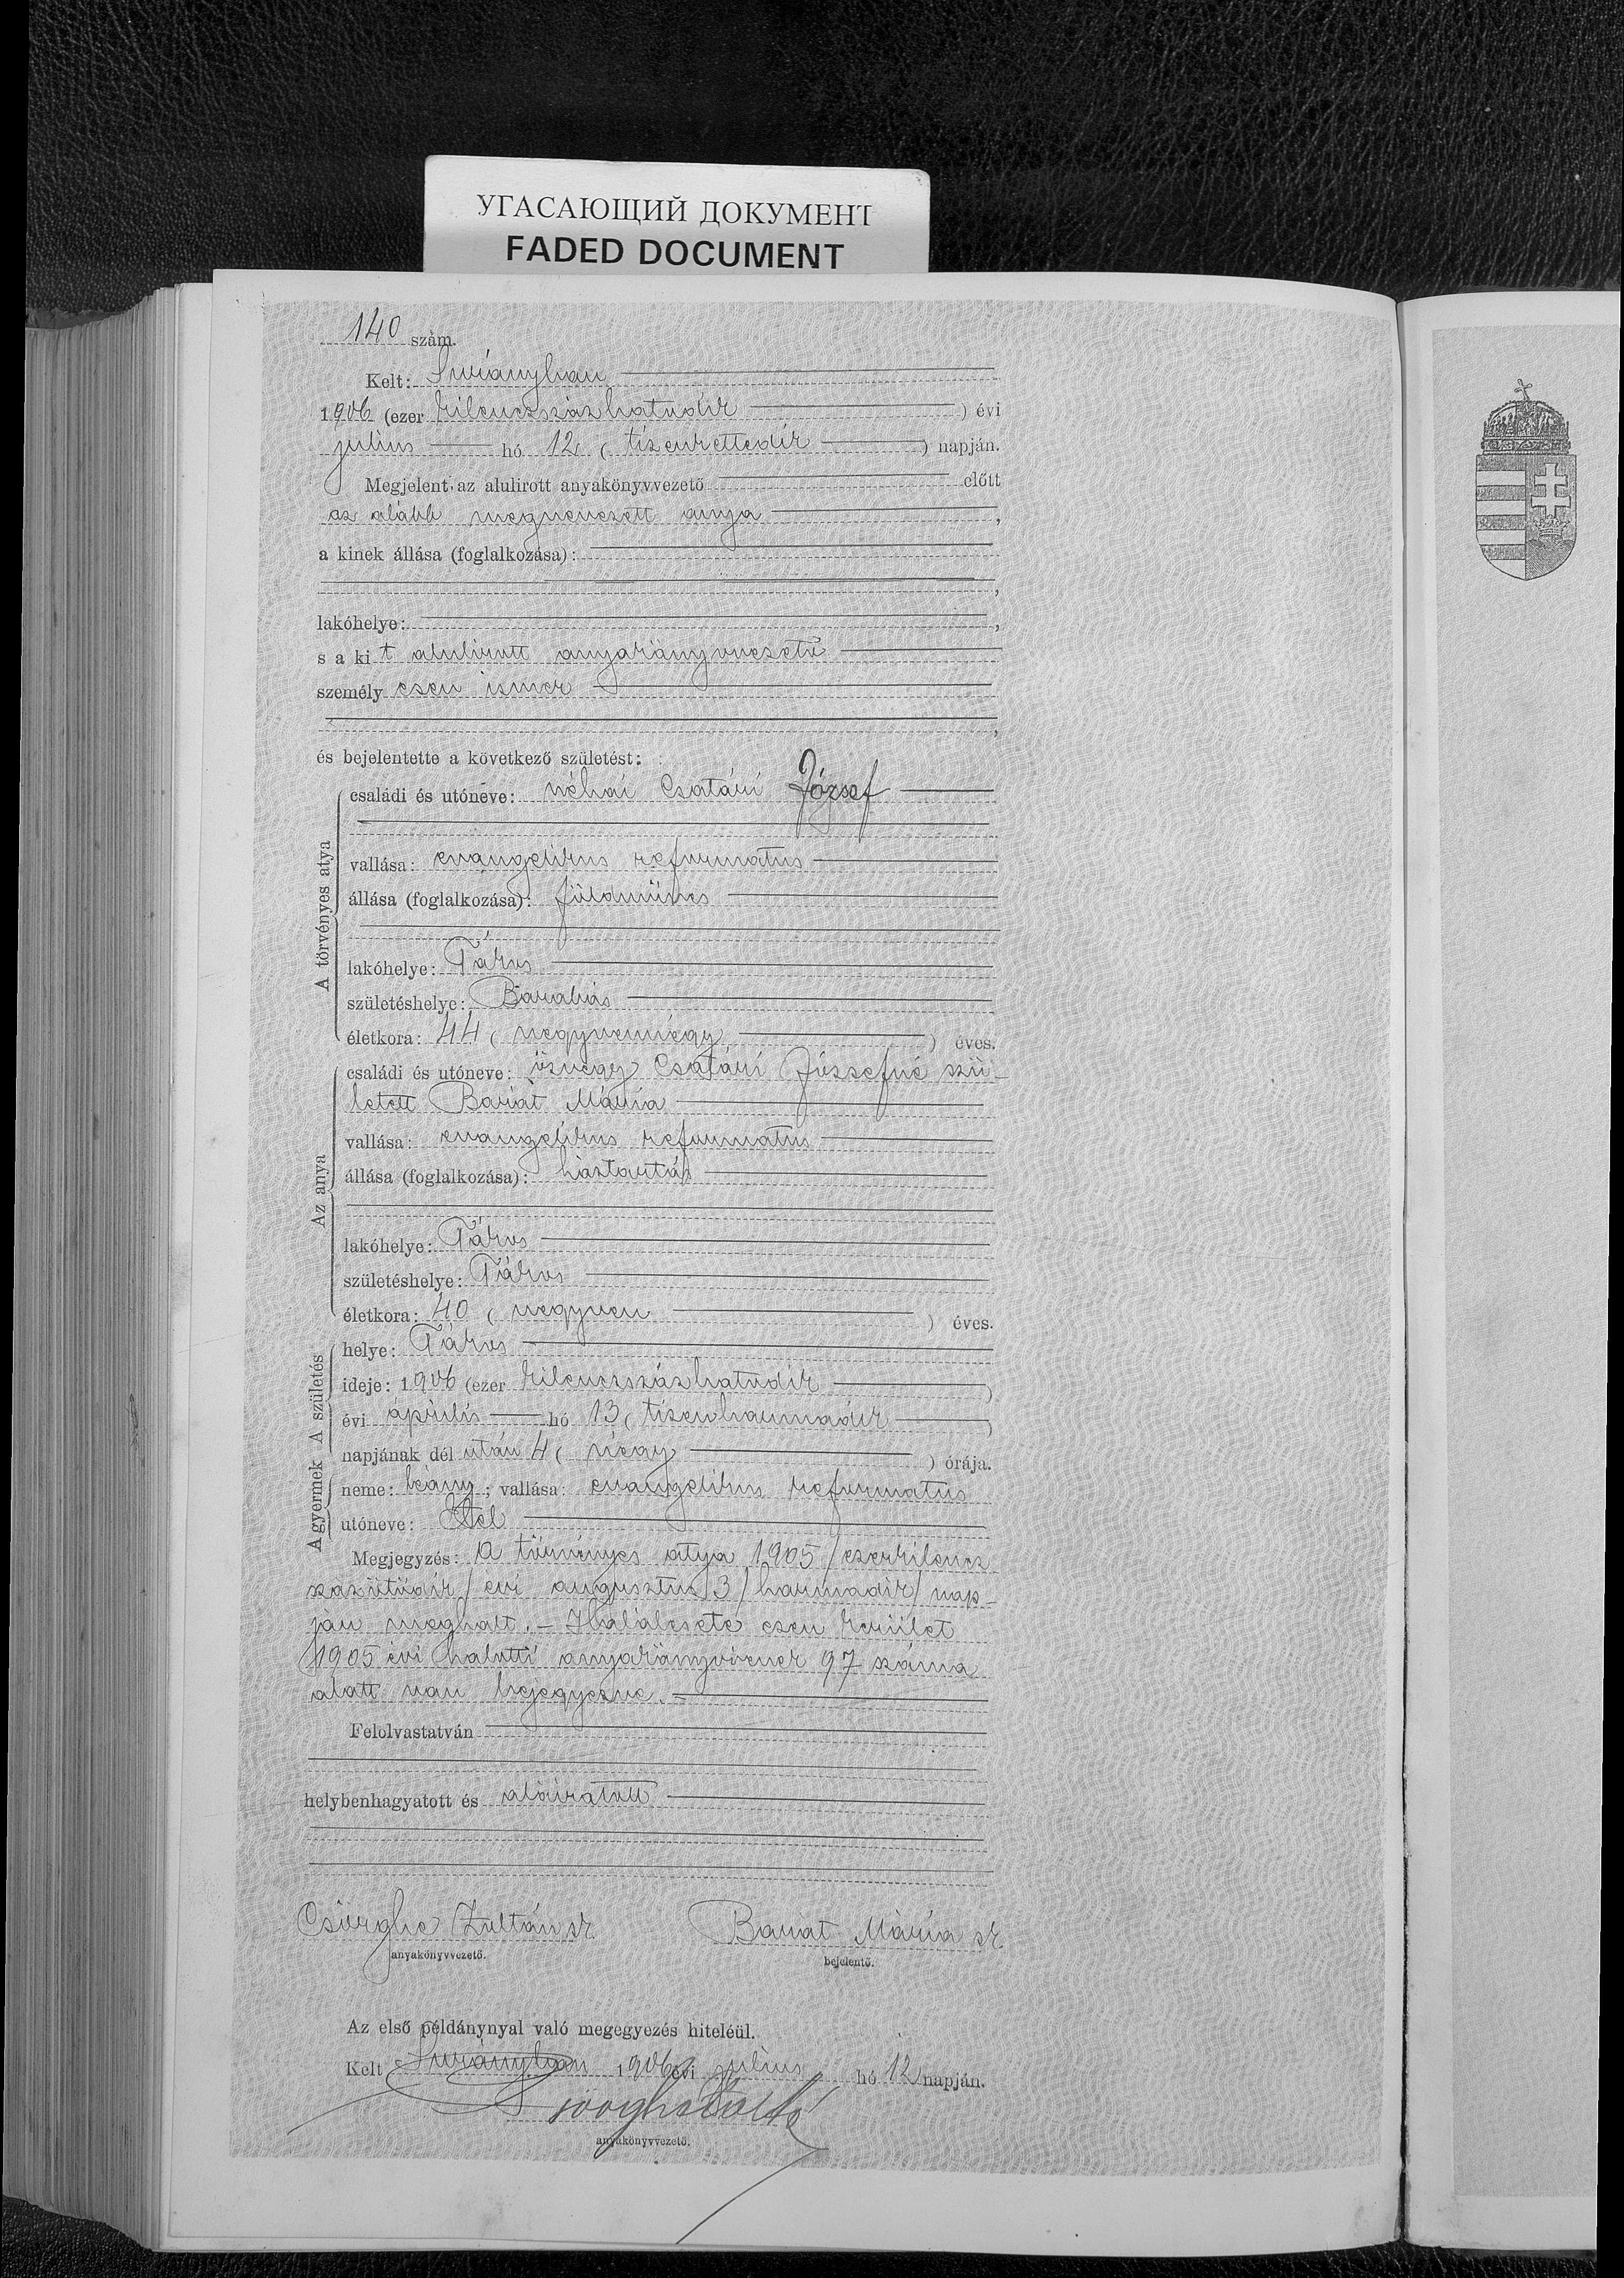 УГАСАЮЩИЙ ДОКУМЕНТ
FADED DOCUMENT
140 szám.
Kelt: Surányban
1906 (ezer kilenczszázhatodik) évi
julius hó 12 (tizenkettedik) napján.
Megjelent az alulirott anyakönyvvezető előtt
az alább megnevezett anya,
a kinek állása (foglalkozása):
lakóhelye:
s a kit alulirott anyakönyvvezető
személyesen ismer
és bejelentette a következő születést:
A törvényes atya
családi és utóneve: néhai Csatári József
vallása: evangelikus reformatus
állása (foglalkozása): földmüves
lakóhelye: Tákos
születéshelye: Barabás
életkora: 44 (negyvennégy) éves.
Az anya
családi és utóneve: özvegy Csatári Józsefné szü-
letett Bariát Mária
vallása: evangelikus reformatus
állása (foglalkozása): háztartás
lakóhelye: Tákos
születéshelye: Tákos
életkora: 40 (negyven) éves.
A születés
helye: Tákos
ideje: 1906 (ezer kilenczszázhatodik)
évi április hó 13 (tizenharmadik)
napjának dél után 4 (négy) órája.
A gyermek
neme: leány; vallása: evangelikus reformatus
utóneve: Etel
Megjegyzés: A törvényes atya 1905 /ezerkilencz
százötödik/ évi augusztus 3 /harmadik/ nap-
ján meghalt. – Halálesete ezen kerület
1905 évi halotti anyakönyvének 97 száma
alatt van bejegyezve. –
Felolvastatván
helybenhagyatott és aláiratott
Csörghe Zoltán sk. Bariát Mária sk.
anyakönyvvezető. bejelentő.
Az első példánynyal való megegyezés hiteléül.
Kelt Surányban 1906 évi julius hó 12 napján.
anyakönyvvezető.